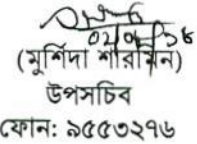 (মুর্শিদা শারমিন)
উপসচিব
ফোন: ৯৫৫৩২৭৬